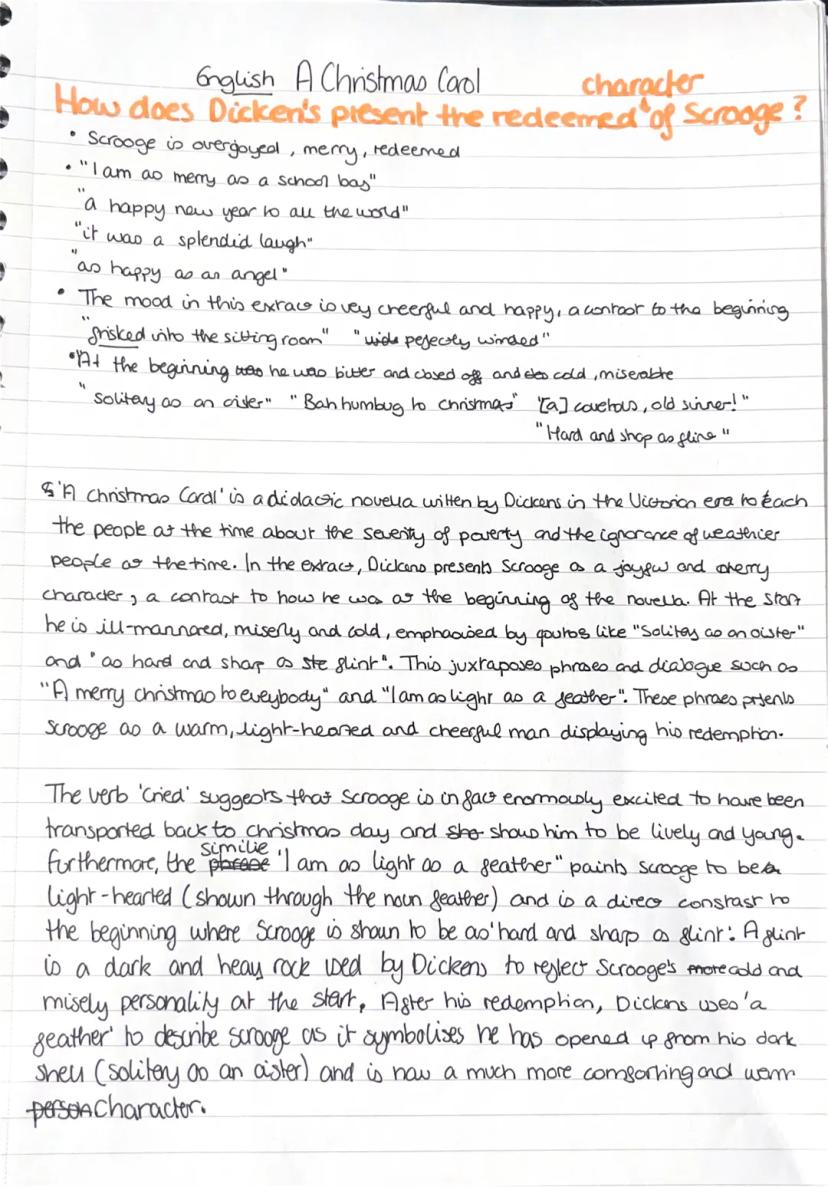 English A Christmas Carol
character
How does Dicken's present the redeemed of Scrooge?
• Scrooge is overjoyed, merry, redeemed
• "I am as merry as a school boy"
"a happy new year to all the world"
"it was a splendid laugh"
"as happy as an angel"
• The mood in this extract is very cheerful and happy, a contast to the beginning
"frisked into the sitting room" "pefectly winded"
• At the beginning he was bitter and closed off and cold, miserable
"solitery as an oister" "Bah humbug to christmas" "[a] covetous, old sinner!"
"Hard and shap as fline"
'A christmas Carol' is a didactic novella written by Dickens in the Victorian era to teach
the people at the time about the severity of poverty and the ignorance of wealthier
people at the time. In the extract, Dickens presents Scrooge as a joyful and cherry
character, a contast to how he was at the beginning of the novella. At the start
he is ill-mannored, miserly and cold, emphasised by quotes like "Solitey as an oister"
and "as hard and sharp as flint". This juxtaposes phrases and dialogue such as
"A merry christmas to eveybody" and "I am as light as a feather". These phrases prtents
Scrooge as a warm, light-hearted and cheerful man displaying his redemption.
The verb 'cried' suggests that Scrooge is in fact enormously excited to have been
transported back to christmas day and shows him to be lively and young.
similie
Furthermore, the 'I am as light as a feather" paints scrooge to be
light-hearted (shown through the noun feather) and is a direct constrast to
the beginning where Scrooge is shown to be as 'hard and sharp as flint'. A flint
is a dark and heavy rock used by Dickens to reflect Scrooge's cold and
misely personality at the start. After his redemption, Dickens uses 'a
feather' to describe scrooge as it symbolises he has opened up from his dark
shell (solitery as an oister) and is now a much more comforting and warm
character.